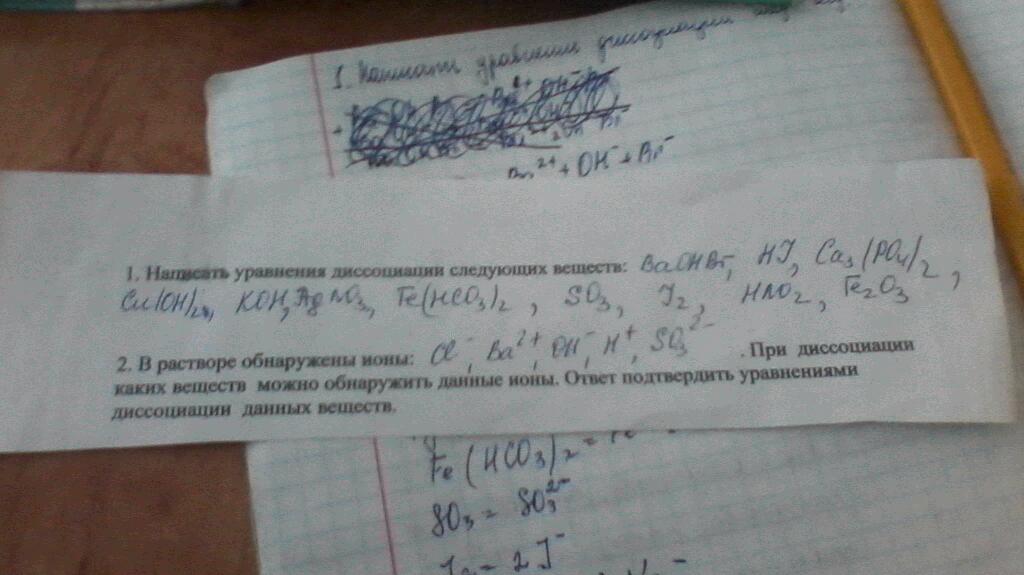 1. Написать уравнения диссоциации
Ba²⁺ + OH⁻ + Br⁻
1. Написать уравнения диссоциации следующих веществ: BaOHBr, HJ, Ca₃(PO₄)₂,
Cu(OH)₂, KOH, AgNO₃, Fe(HCO₃)₂, SO₃, J₂, HNO₂, Fe₂O₃
2. В растворе обнаружены ионы: Cl⁻, Ba²⁺, OH⁻, H⁺, SO₃²⁻. При диссоциации
каких веществ можно обнаружить данные ионы. Ответ подтвердить уравнениями
диссоциации данных веществ.
Fe(HCO₃)₂ = Fe
SO₃ = SO₃²⁻
J₂ = 2J⁻